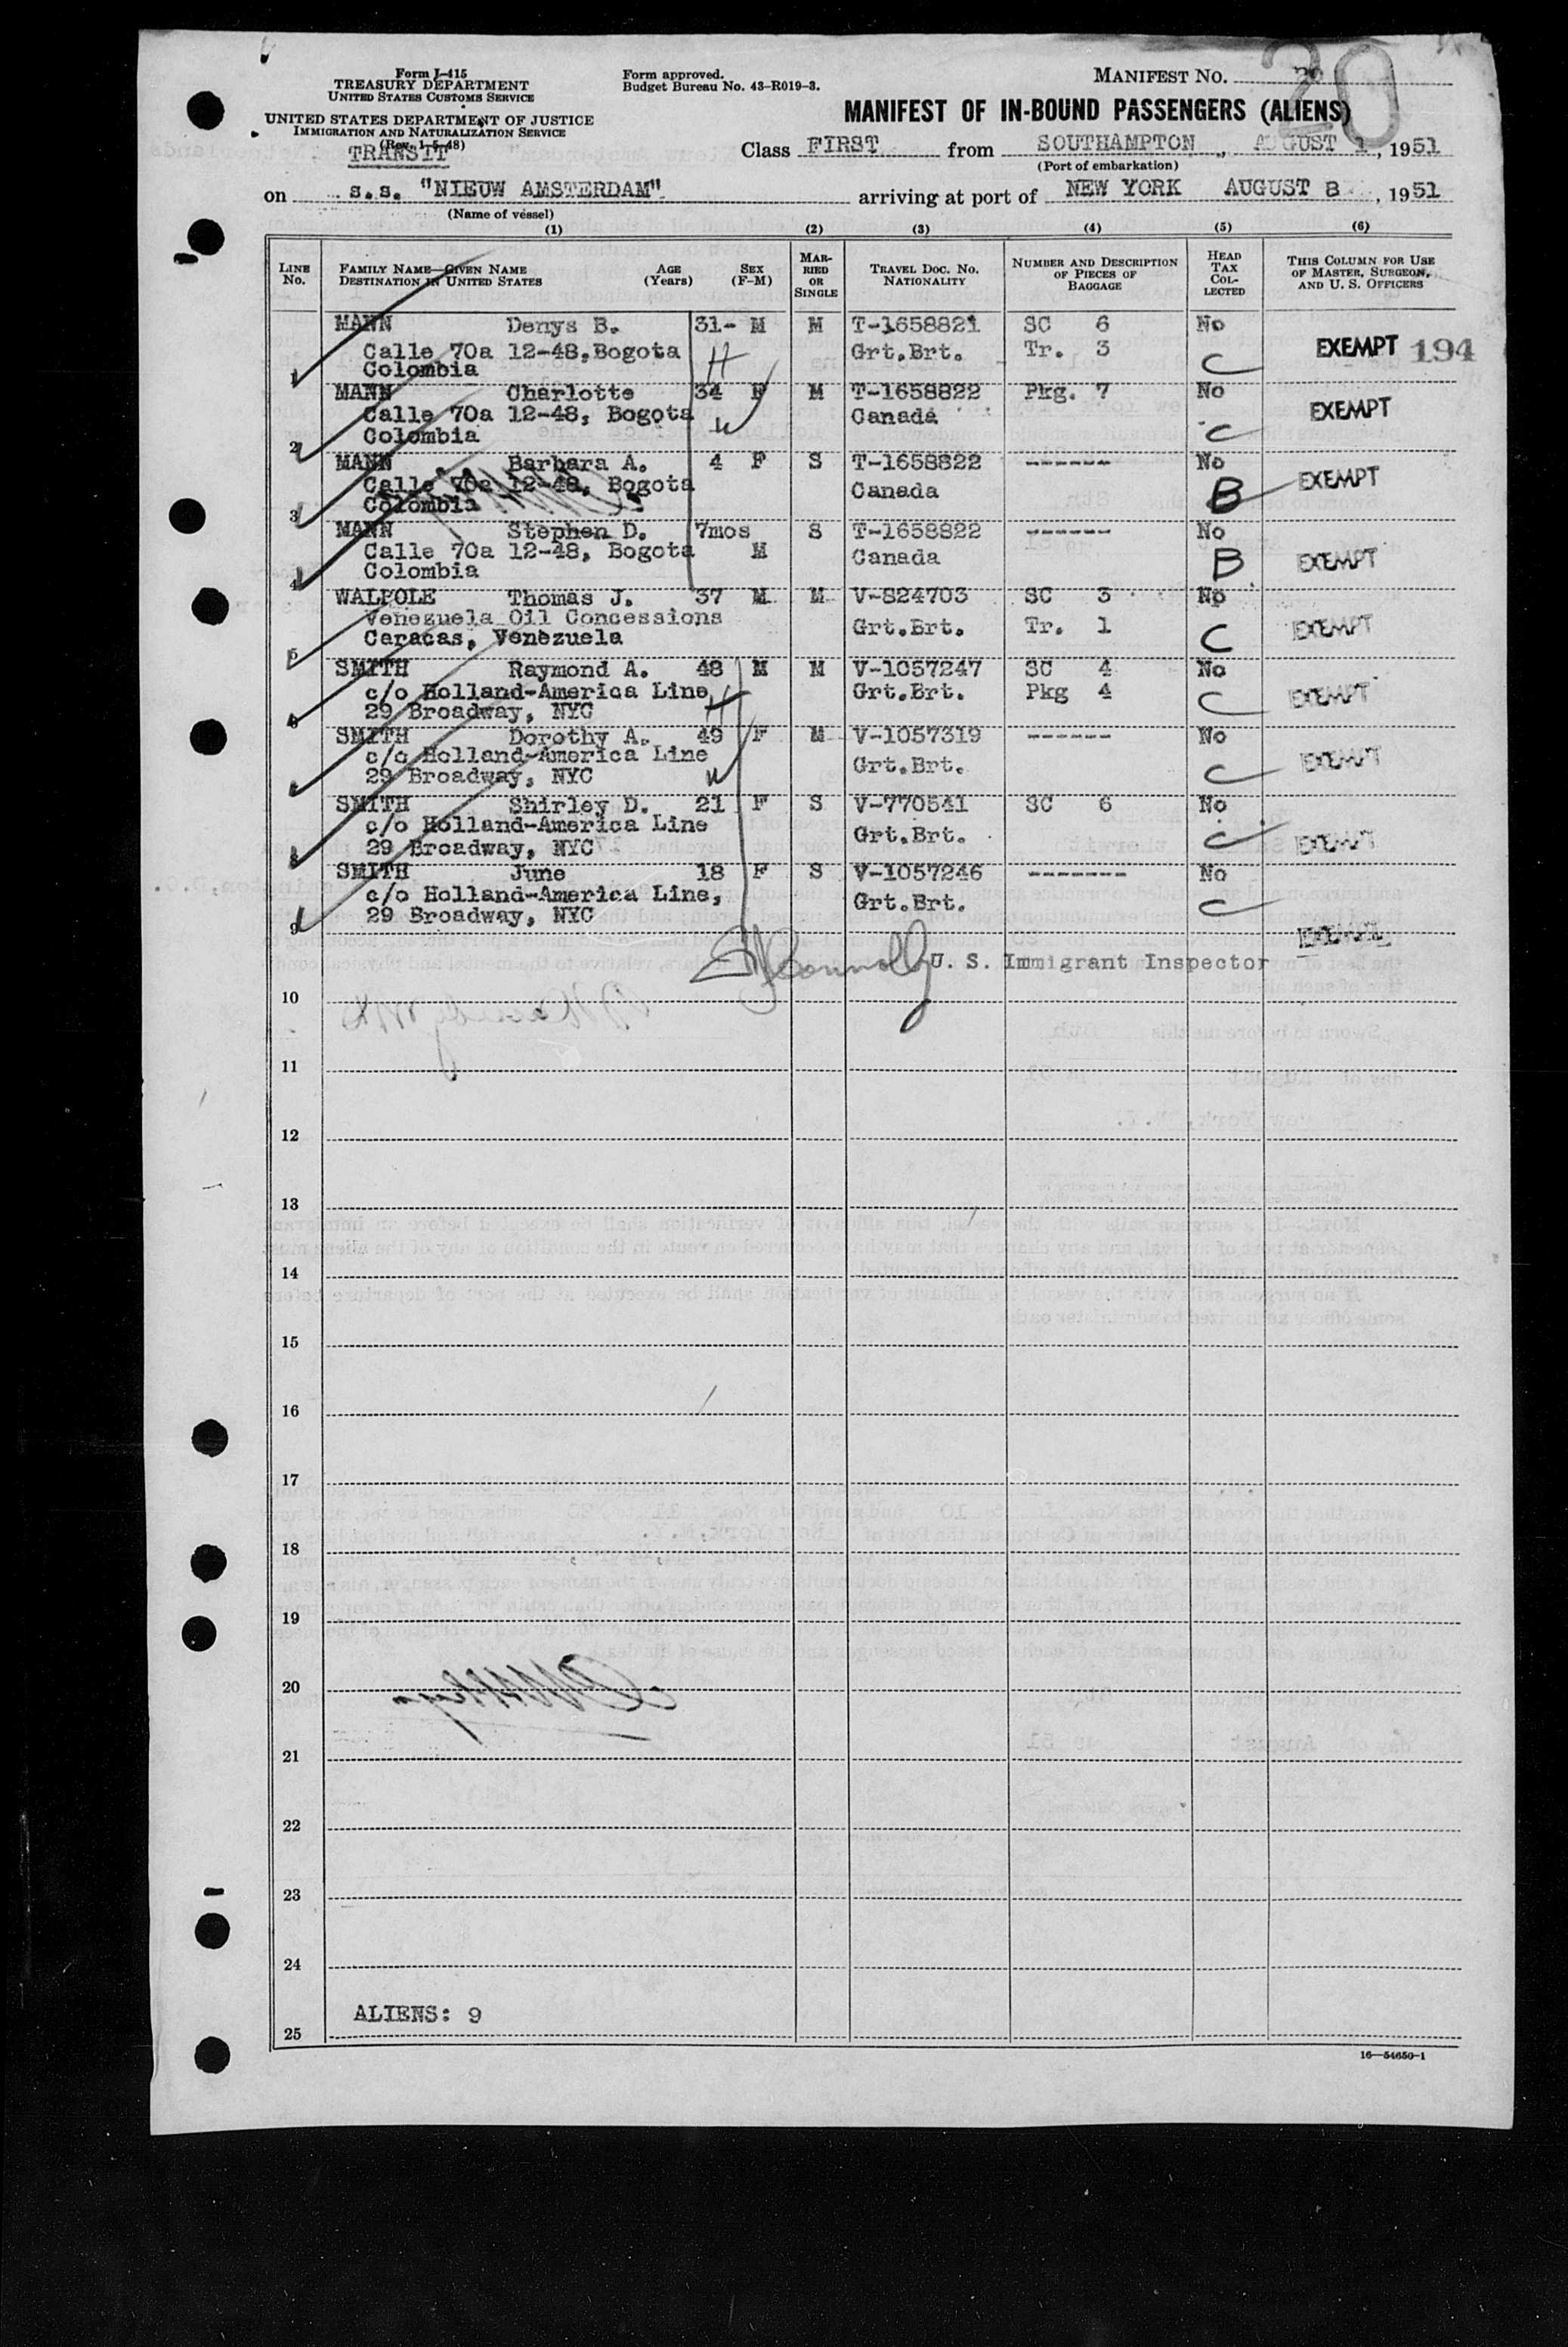 Form I-415
TREASURY DEPARTMENT
UNITED STATES CUSTOMS SERVICE
UNITED STATES DEPARTMENT OF JUSTICE
IMMIGRATION AND NATURALIZATION SERVICE
(Rev. 1-5-48)
TRANSIT
Form approved.
Budget Bureau No. 43-R019-3.
MANIFEST NO. 20
20
MANIFEST OF IN-BOUND PASSENGERS (ALIENS)
Class FIRST from SOUTHAMPTON, AUGUST 1, 1951
(Port of embarkation)
on s.s. "NIEUW AMSTERDAM" arriving at port of NEW YORK AUGUST 8, 1951
(Name of vessel)
(1) (2) (3) (4) (5) (6)
LINE No. FAMILY NAME—GIVEN NAME DESTINATION IN UNITED STATES AGE (Years) SEX (F-M) MARRIED OR SINGLE TRAVEL DOC. NO. NATIONALITY NUMBER AND DESCRIPTION OF PIECES OF BAGGAGE HEAD TAX COLLECTED THIS COLUMN FOR USE OF MASTER, SURGEON, AND U. S. OFFICERS
MANN Denys B. 31- M M T-1658821 SC 6 No
Calle 70a 12-48, Bogota H Grt.Brt. Tr. 3 C EXEMPT 194
1 Colombia
MANN Charlotte 34 F M T-1658822 Pkg. 7 No
Calle 70a 12-48, Bogota W Canada C EXEMPT
2 Colombia
MANN Barbara A. 4 F S T-1658822 ------ No
Calle 70a 12-48, Bogota Canada B EXEMPT
3 Colombia
MANN Stephen D. 7mos S T-1658822 ------ No
Calle 70a 12-48, Bogota M Canada B EXEMPT
4 Colombia
WALPOLE Thomas J. 37 M M V-824703 SC 3 No
Venezuela Oil Concessions Grt.Brt. Tr. 1 C EXEMPT
5 Caracas, Venezuela
SMITH Raymond A. 48 M M V-1057247 SC 4 No
c/o Holland-America Line H Grt.Brt. Pkg 4 C EXEMPT
6 29 Broadway, NYC
SMITH Dorothy A. 49 F M V-1057319 ------ No
c/o Holland-America Line W Grt.Brt. C EXEMPT
7 29 Broadway, NYC
SMITH Shirley D. 21 F S V-770541 SC 6 No
c/o Holland-America Line Grt.Brt. C EXEMPT
8 29 Broadway, NYC
SMITH June 18 F S V-1057246 ------- No
c/o Holland-America Line, Grt.Brt. C
9 29 Broadway, NYC EXEMPT
Connolly U. S. Immigrant Inspector
10
11
12
13
14
15
16
17
18
19
20
21
22
23
24
ALIENS: 9
25
16—54650-1